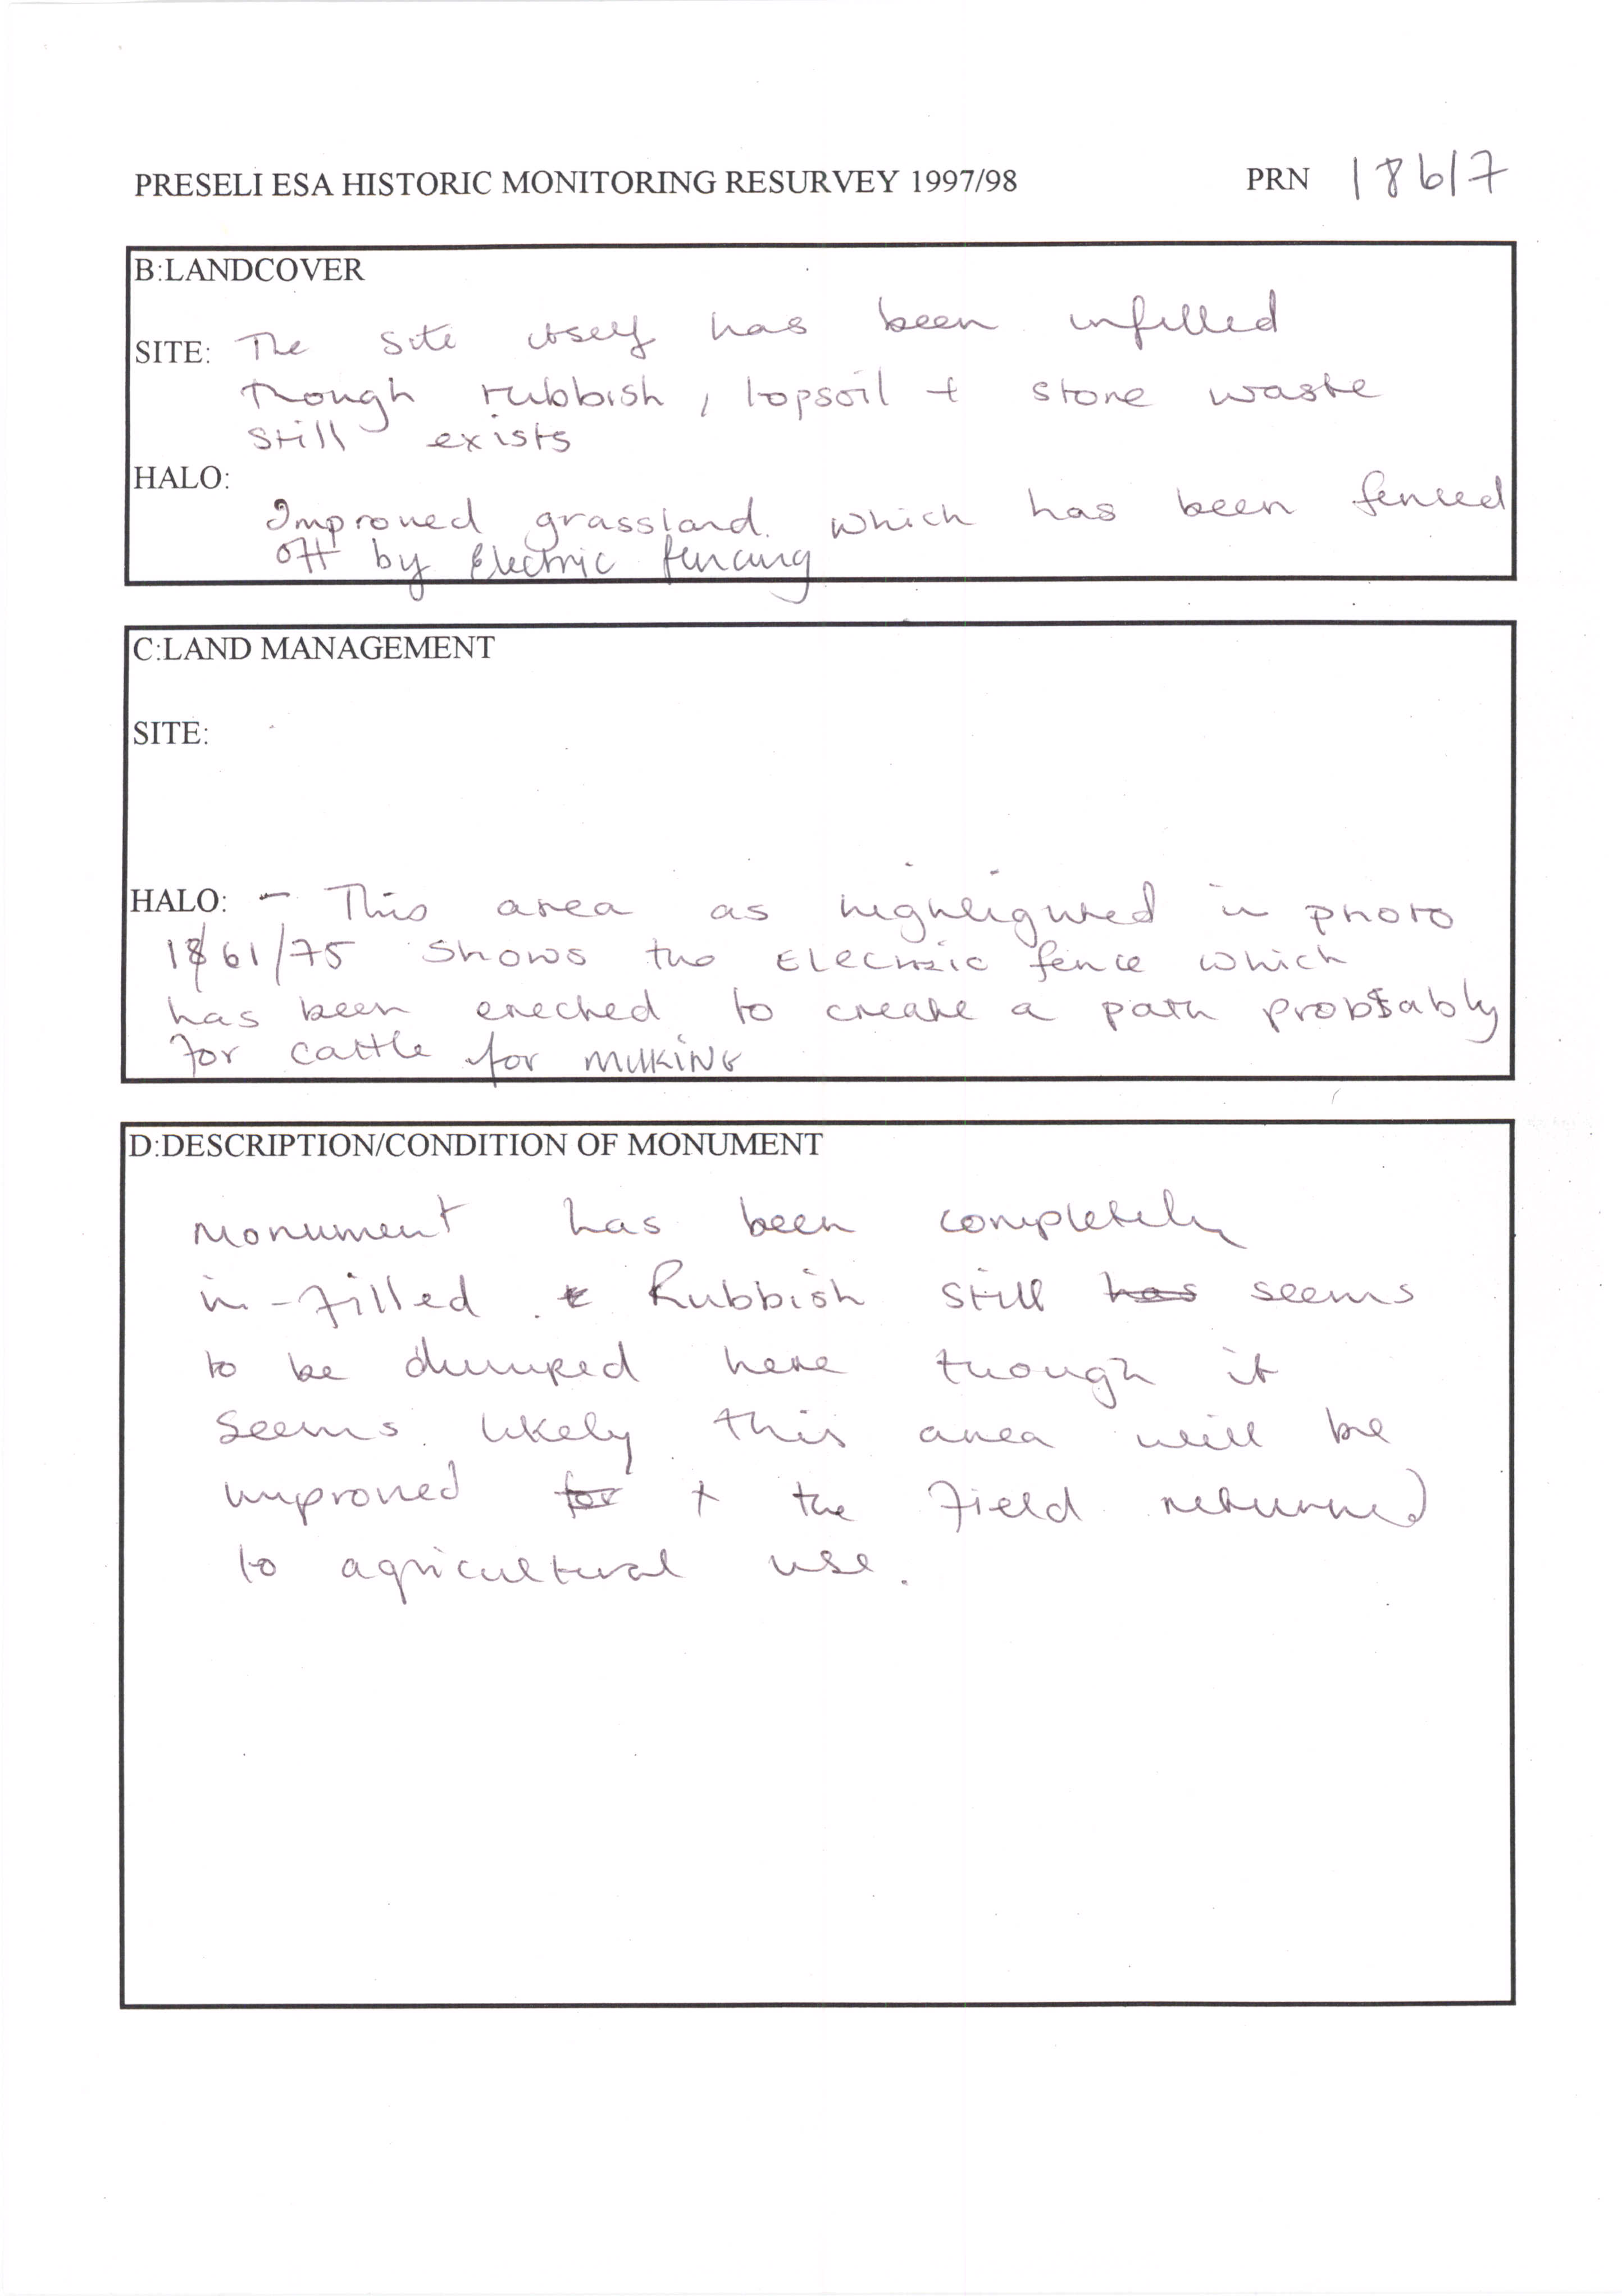 PRESELI ESA HISTORIC MONITORING RESURVEY 1997/98 PRN 18617
B:LANDCOVER
SITE: The site itself has been infilled
though rubbish, topsoil + stone waste
still exists
HALO:
Improved grassland. which has been fenced
off by Electric fencing
C:LAND MANAGEMENT
SITE:
HALO: - This area as highlighted in photo
1861/75 shows the Electric fence which
has been erected to create a path probably
for cattle for MilKiNG
D:DESCRIPTION/CONDITION OF MONUMENT
Monument has been completely
in-filled. Rubbish still has seems
to be dumped here though it
seems likely this area will be
improved for + the field returned
to agricultural use.